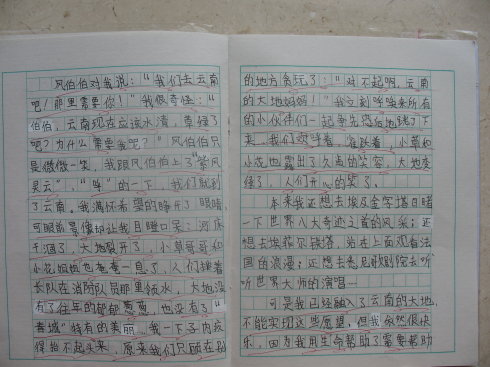 风伯伯对我说："我们去云南
吧！那里需要你！"我很奇怪："
伯伯，云南现在应该水清，草绿了
吧？为什么需要我呢？"风伯伯只
是微微一笑，我跟风伯伯上了"紫风
灵云"，"呼"的一下，我们就到
了云南。我满怀希望的睁开了眼睛，
可眼前景像却让我目瞪口呆：河床
干涸了，大地裂开了，小草哥哥和
小花姐姐也奄奄一息了，人们排着
长队在消防队员那里领水，大地没
有了往年的郁郁葱葱，也没有了"
春城"特有的美丽。我一下子内疚
得抬不起头来，原来我们只顾在别
的地方贪玩了："对不起啊，云南
的大地妈妈！"我立刻呼唤来所有
的小伙伴们一起争先恐后地跳了下
来，我们欢呼着，雀跃着，小草和
小花也露出了久违的笑容，大地变
绿了，人们开心的笑了。
本来我还想去埃及金字塔目睹
一下世界八大奇迹之首的风采；还
想去埃菲尔铁塔，站在上面观看法
国的浪漫；还想去悉尼歌剧院去听
听世界大师的演唱…
可是我已经融入了云南的大地，
不能实现这些愿望，但我依然很快
乐，因为我用生命帮助了需要帮助